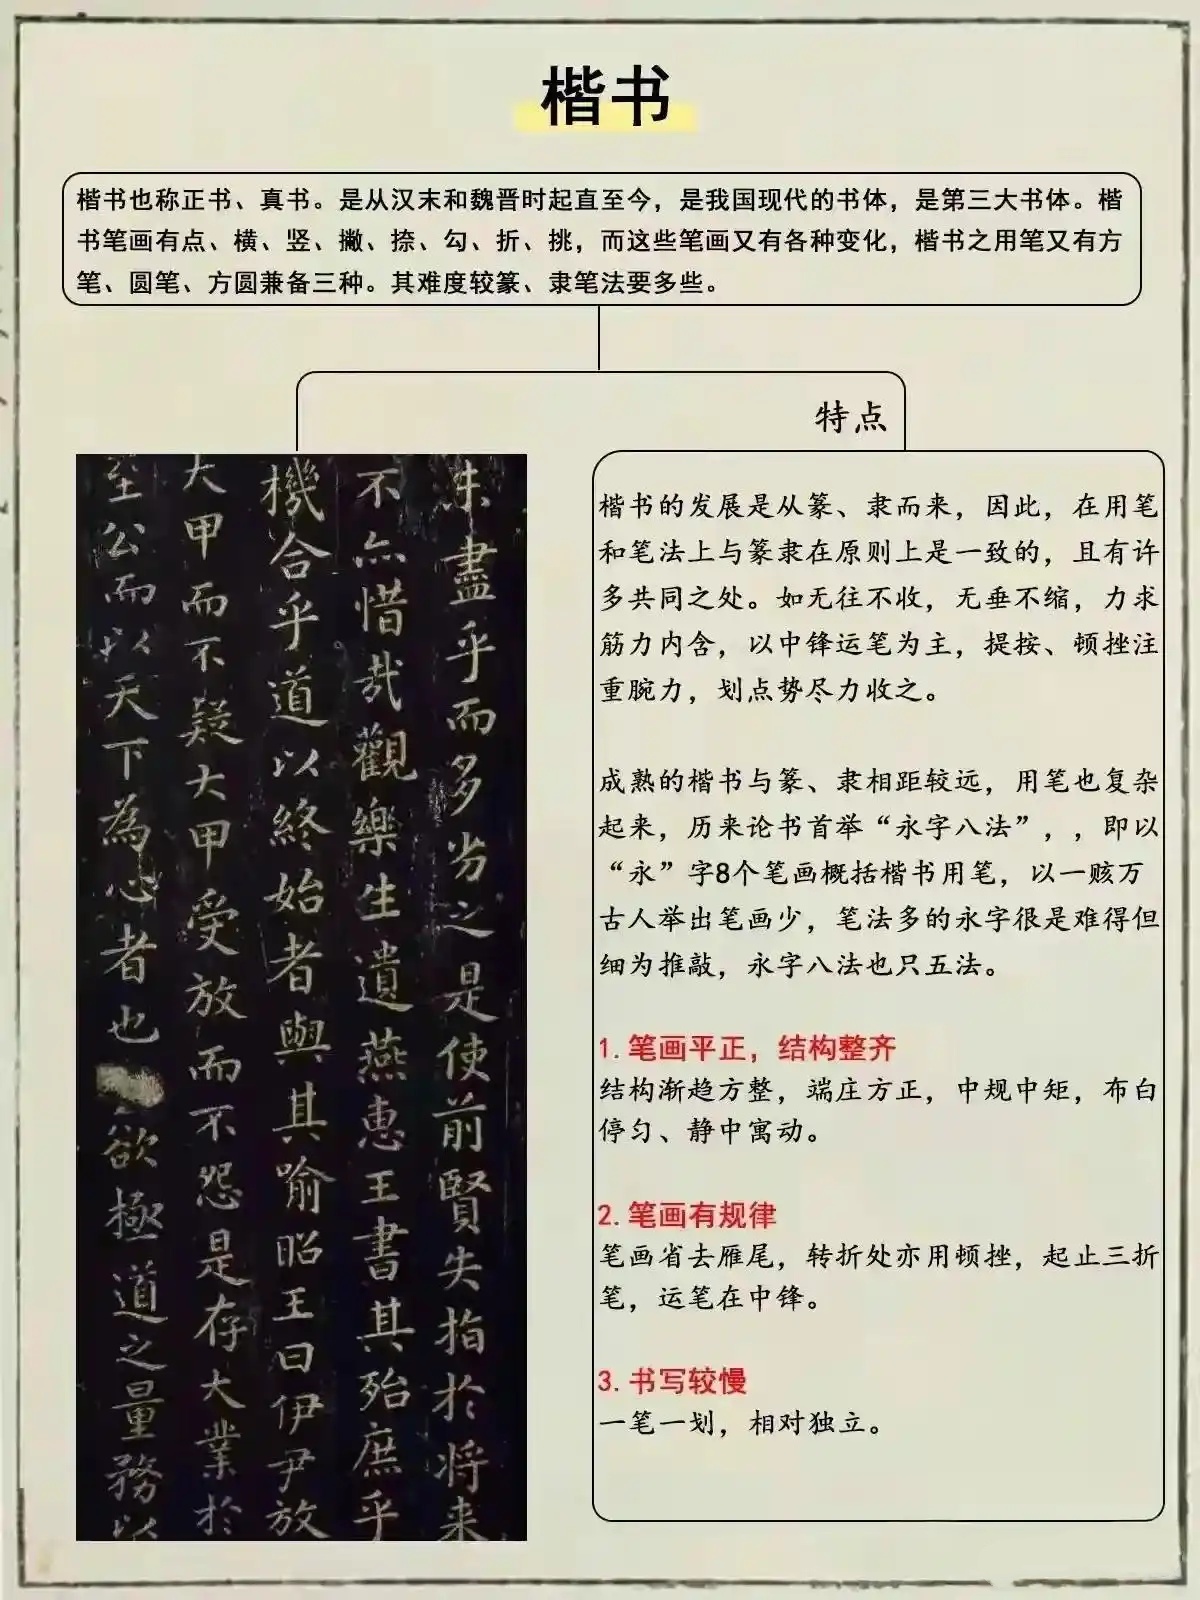 楷书
楷书也称正书、真书。是从汉末和魏晋时起直至今，是我国现代的书体，是第三大书体。楷
书笔画有点、横、竖、撇、捺、勾、折、挑，而这些笔画又有各种变化，楷书之用笔又有方
笔、圆笔、方圆兼备三种。其难度较篆、隶笔法要多些。
特点
盡乎而多劣之是使前賢失指於将来
不亦惜哉觀樂生遺燕惠王書其殆庶乎
機合乎道以終始者與其喻昭王曰伊尹放
大甲而不疑大甲受放而不怨是存大業於
至公而以天下為心者也欲極道之量務以
楷书的发展是从篆、隶而来，因此，在用笔
和笔法上与篆隶在原则上是一致的，且有许
多共同之处。如无往不收，无垂不缩，力求
筋力内含，以中锋运笔为主，提按、顿挫注
重腕力，划点势尽力收之。
成熟的楷书与篆、隶相距较远，用笔也复杂
起来，历来论书首举“永字八法”，，即以
“永”字8个笔画概括楷书用笔，以一赅万
古人举出笔画少，笔法多的永字很是难得但
细为推敲，永字八法也只五法。
1.笔画平正，结构整齐
结构渐趋方整，端庄方正，中规中矩，布白
停匀、静中寓动。
2.笔画有规律
笔画省去雁尾，转折处亦用顿挫，起止三折
笔，运笔在中锋。
3.书写较慢
一笔一划，相对独立。